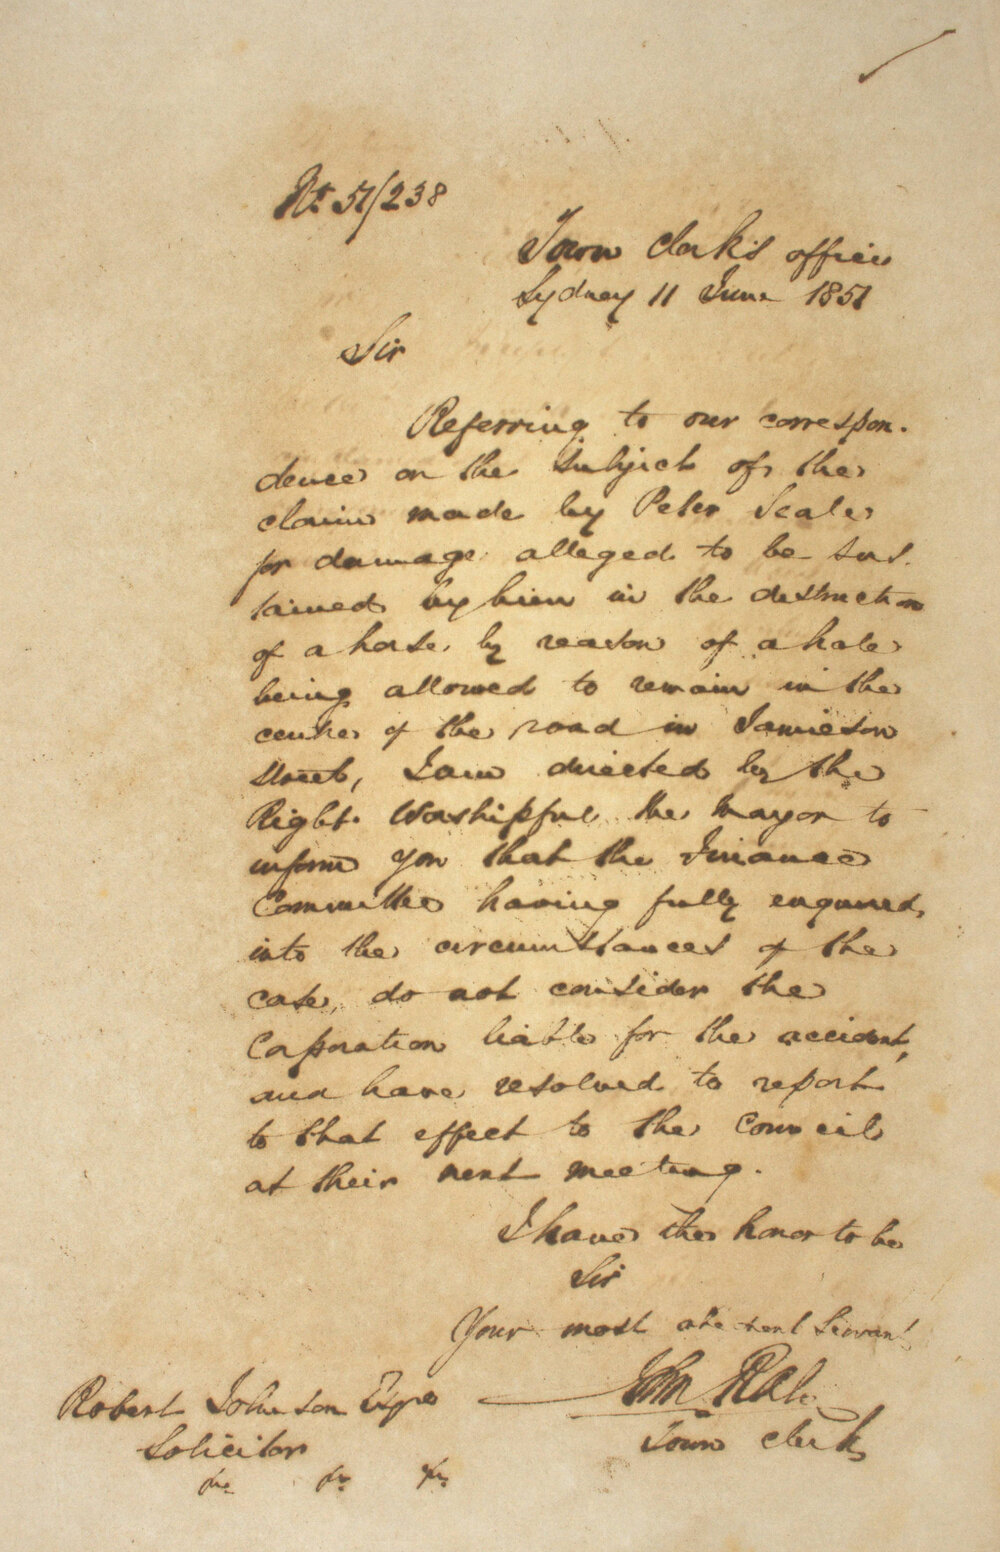 No 51/238
Town Clerk's office
Sydney 11 June 1851
Sir
Referring to our correspon-
dence on the subject of the
claim made by Peter Seale
for damage alleged to be sus-
tained by him in the destruction
of a horse, by reason of a hole
being allowed to remain in the
centre of the road in Jamieson
Street, I am directed by the
Right Worshipful the Mayor to
inform you that the Finance
Committee having fully enquired
into the circumstances of the
case, do not consider the
Corporation liable for the accident,
and have resolved to report
to that effect to the Council
at their next meeting.
I have the honor to be
Sir
Your most obedient Servant
John
Town Clerk
Robert Johnson Esqre
Solicitor
&c &c &c